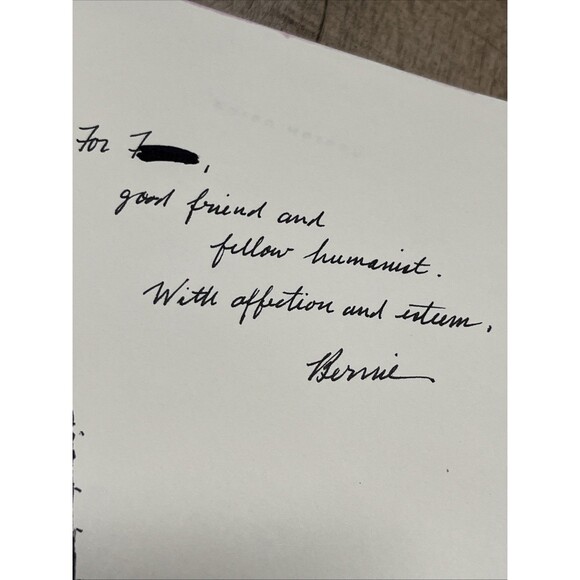 For F
good friend and
fellow humanist.
With affection and esteem,
Bernie